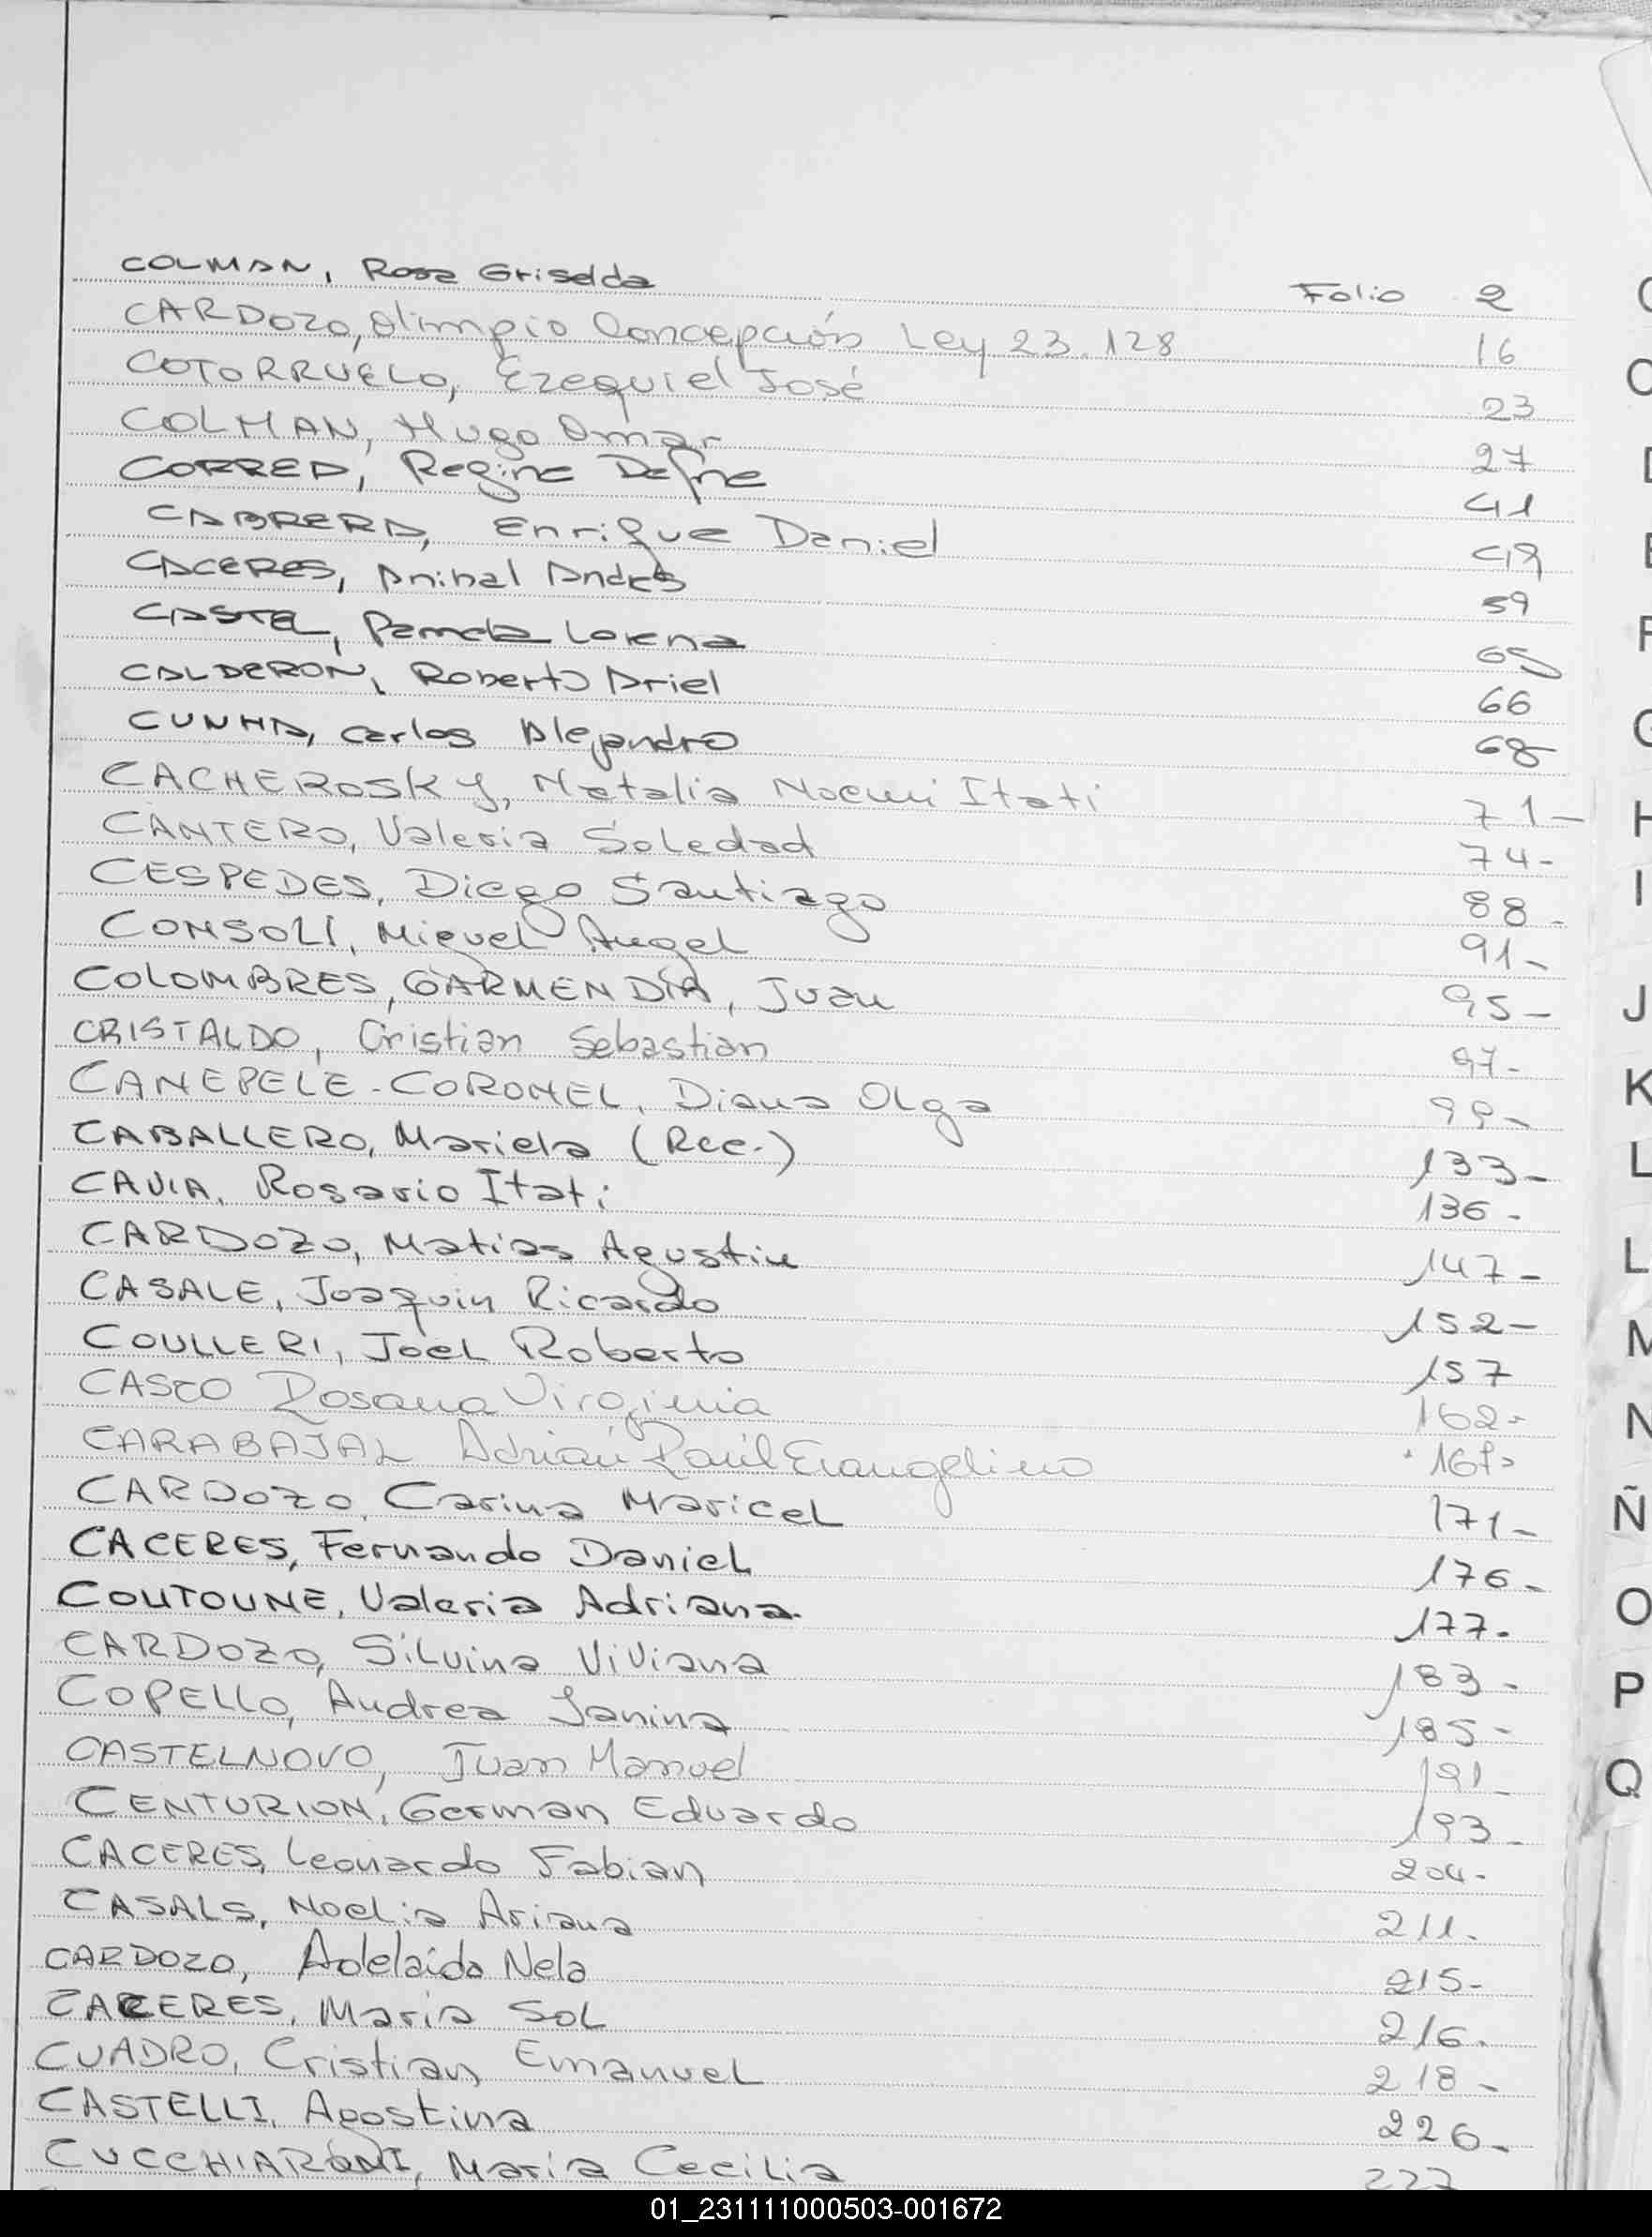 COLMAN, Rosa Griselda Folio 2
CARDOZO, Olimpio Concepción Ley 23.128 16
COTORRUELO, Ezequiel José 23
COLMAN, Hugo Omar 27
CORREA, Regina Dafne 41
CABRERA, Enrique Daniel 49
CACERES, Anibal Andres 59
CASTEL, Pamela Lorena 65
CALDERON, Roberto Ariel 66
CUNHA, Carlos Alejandro 68
CACHEROSKY, Natalia Noemi Itati 71-
CANTERO, Valeria Soledad 74-
CESPEDES, Diego Santiago 88-
CONSOLI, Miguel Angel 91-
COLOMBRES, GARMENDIA, Juan 95-
CRISTALDO, Cristian Sebastian 97-
CANEPELE-CORONEL, Diana Olga 99-
CABALLERO, Mariela (Rec.) 133-
CAVIA, Rosario Itati 136-
CARDOZO, Matias Agustin 147-
CASALE, Joaquin Ricardo 152-
COULLERI, Joel Roberto 157
CASCO Rosana Virginia 162-
CARABAJAL Adrián Raúl Evangelino
CARDOZO, Carina Maricel 171-
CACERES, Fernando Daniel 176-
COUTOUNE, Valeria Adriana. 177-
CARDOZO, Silvina Viviana 183-
COPELLO, Andrea Janina 185-
CASTELNOVO, Juan Manuel 191-
CENTURION, German Eduardo 193-
CACERES, Leonardo Fabian 204-
CASALS, Noelia Ariana 211-
CARDOZO, Adelaida Nela 215-
CACERES, Maria Sol 216-
CUADRO, Cristian Emanuel 218-
CASTELLI, Agostina 226-
CUCCHIARONI, Maria Cecilia 227
J
K
L
N
Ñ
O
P
Q
01_231111000503-001672